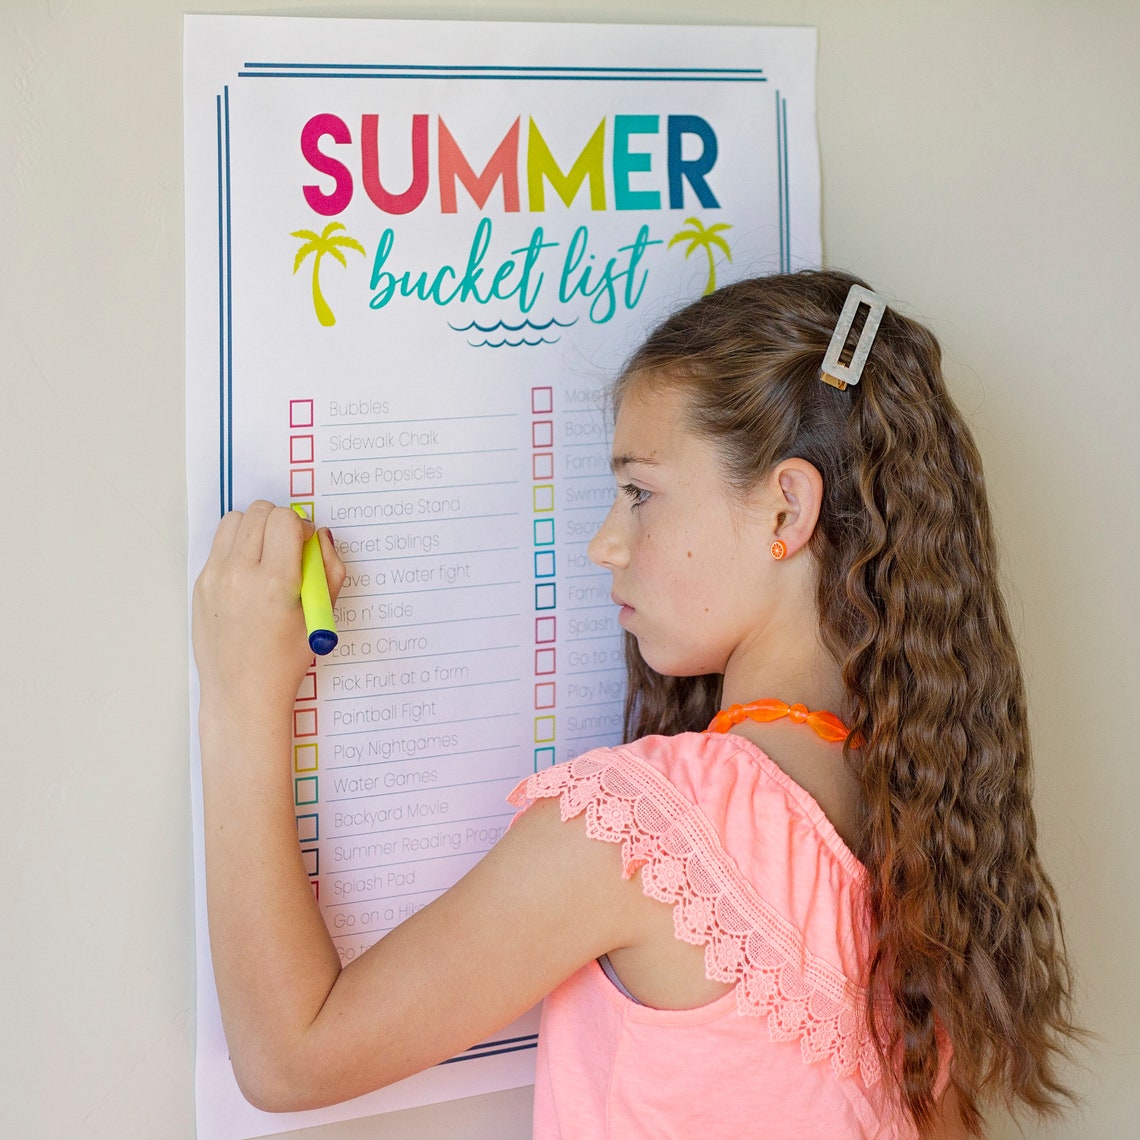 SUMMER
bucket list
Bubbles
Sidewalk Chalk
Make Popsicles
Lemonade Stand
Secret Siblings
ave a Water fight
Slip n' Slide
Eat a Churro
Pick Fruit at a farm
Paintball Fight
Play Nightgames
Water Games
Backyard Movie
Summer Reading Progr
Splash Pad
Go on a Hike
Go to
Make
Backya
Family
Swimm
Secre
Hav
Family
Splash
Go to a
Play Nig
Summe